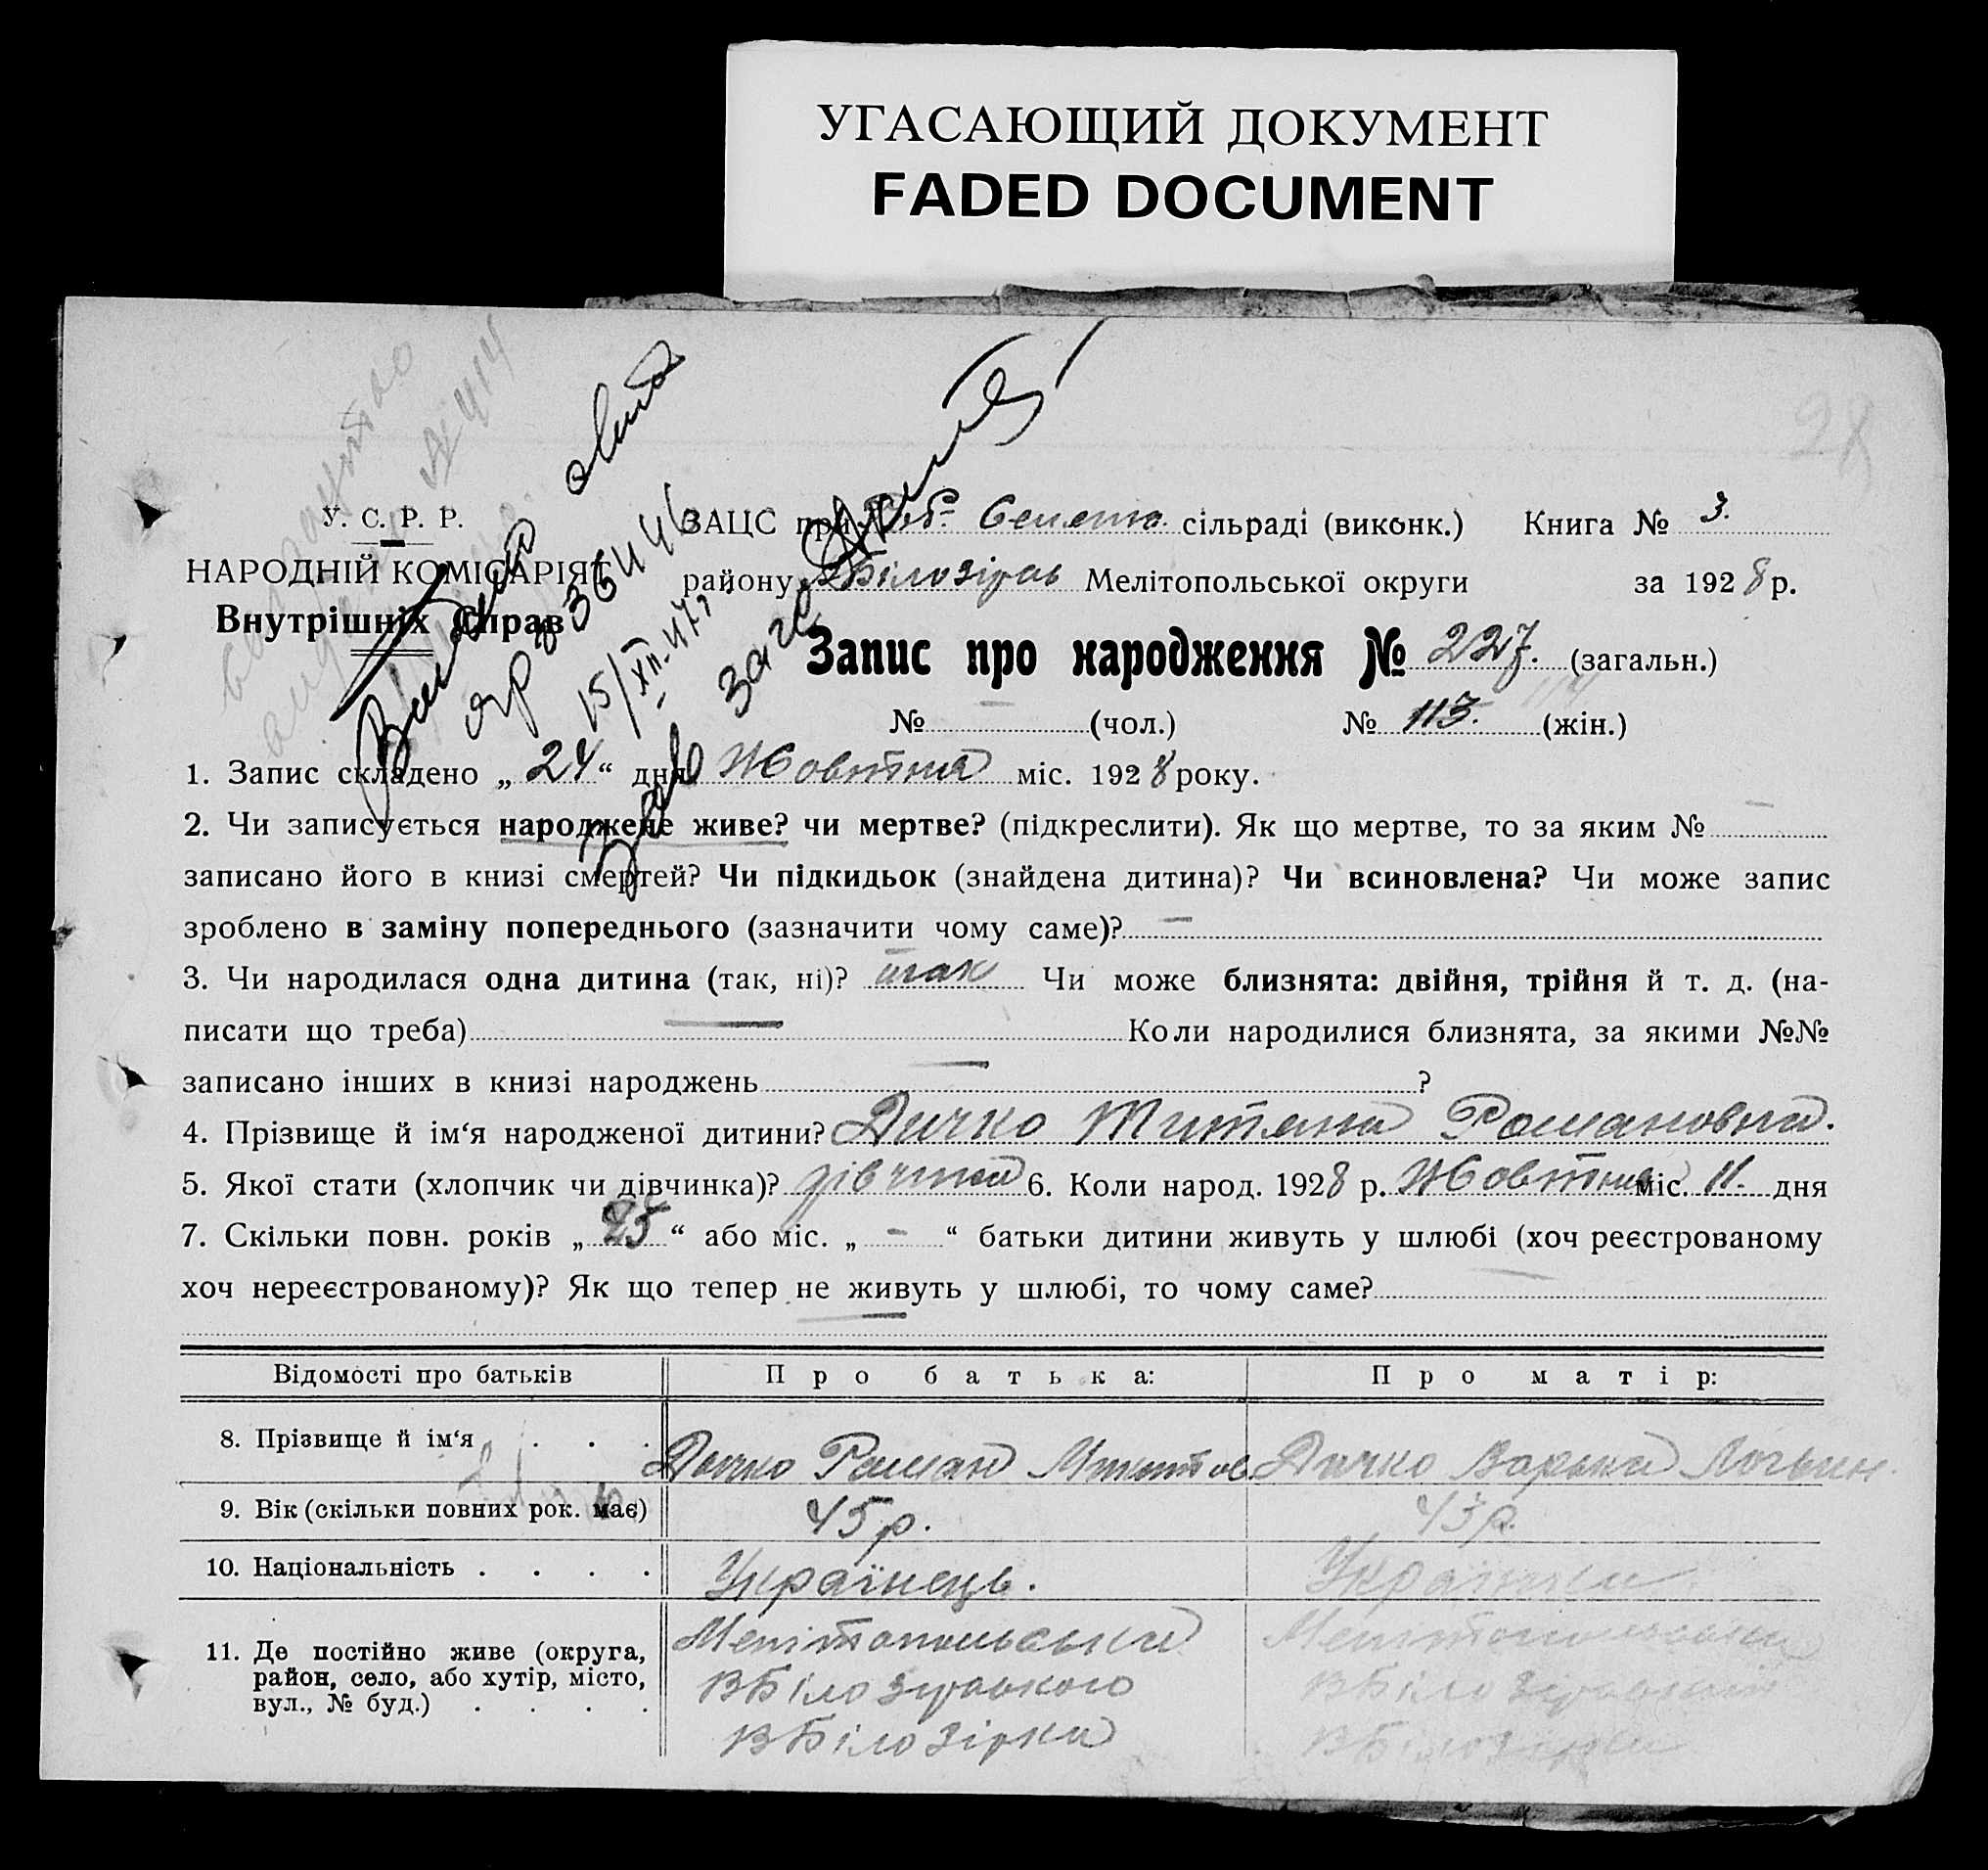 УГАСАЮЩИЙ ДОКУМЕНТ
FADED DOCUMENT
28
У. С. Р. Р.
НАРОДНІЙ КОМІСАРІЯТ
Внутрішніх Справ
15/XII-47
ЗАЦС при сільраді (виконк.) Книга № 3.
району ВБілозірсь Мелітопольської округи за 1928 р.
Запис про народження № 227. (загальн.)
№ — (чол.) № 113. (жін.)
1. Запис складено „24“ дня Жовтня міс. 1928 року.
2. Чи записується народжене живе? чи мертве? (підкреслити). Як що мертве, то за яким № —
записано його в книзі смертей? Чи підкидьок (знайдена дитина)? Чи всиновлена? Чи може запис
зроблено в заміну попереднього (зазначити чому саме)? —
3. Чи народилася одна дитина (так, ні)? так Чи може близнята: двійня, трійня й т. д. (на-
писати що треба) — Коли народилися близнята, за якими №№
записано інших в книзі народжень — ?
4. Прізвище й ім‘я народженої дитини? Дичко Титяна Романовна.
5. Якої стати (хлопчик чи дівчинка)? дівчина 6. Коли народ. 1928 р. Жовтня міс. 11. дня
7. Скільки повн. років „25“ або міс. „ - “ батьки дитини живуть у шлюбі (хоч реєстрованому
хоч нереєстрованому)? Як що тепер не живуть у шлюбі, то чому саме?
—
Відомості про батьків Про батька: Про матір:
8. Прізвище й ім‘я . . . Дичко Роман Микитов Дичко Варька Логвин.
9. Вік (скільки повних рок. має) 45 р. 43 р.
10. Національність . . . . Українець. Українка
11. Де постійно живе (округа, район, село, або хутір, місто, вул., № буд.) . . . .
Мелітопольська Мелітопольська
ВБілозірського ВБілозірський
ВБілозірка ВБілозірка